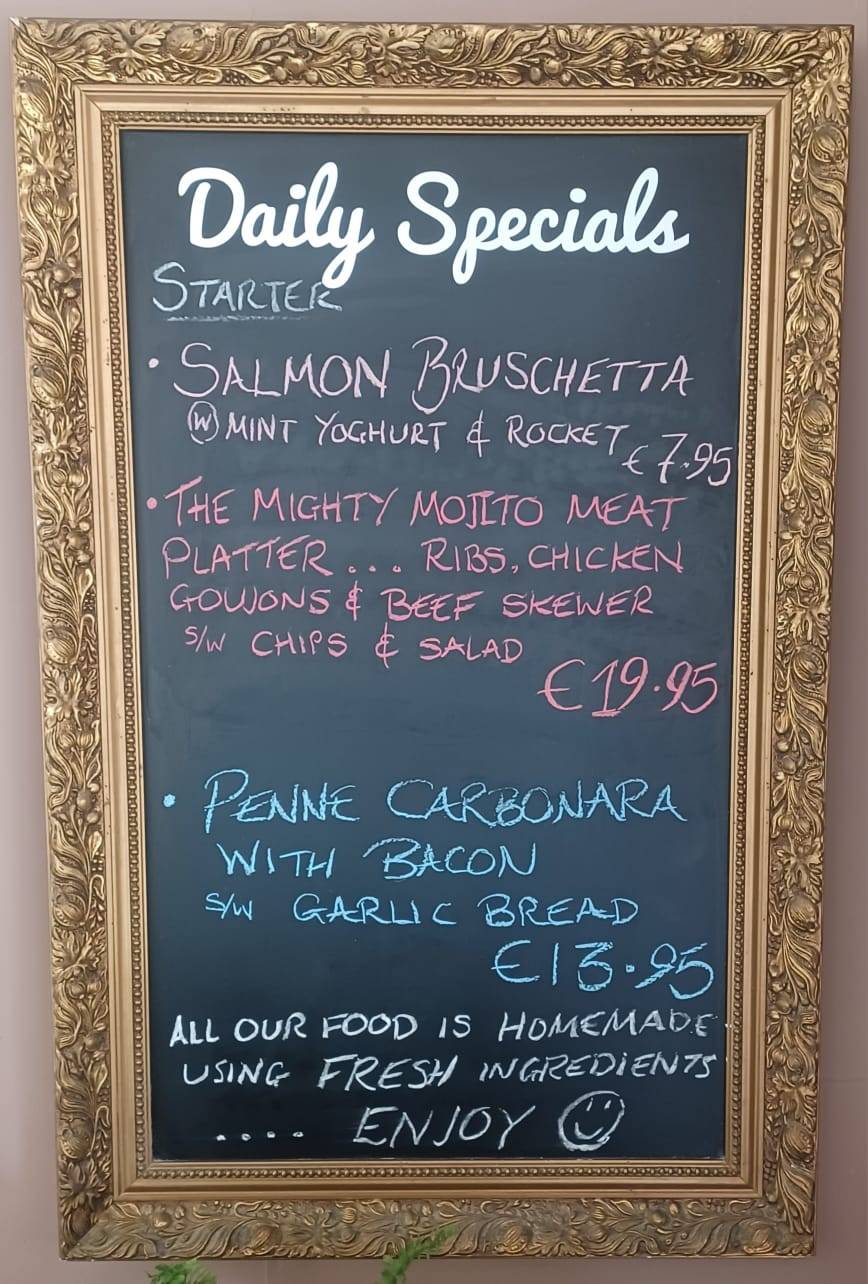 Daily Specials
STARTER
• SALMON BRUSCHETTA
Ⓦ MINT YOGHURT & ROCKET €7.95
• THE MIGHTY MOJITO MEAT
PLATTER ... RIBS, CHICKEN
GOUJONS & BEEF SKEWER
S/W CHIPS & SALAD
€19.95
• PENNE CARBONARA
WITH BACON
S/W GARLIC BREAD
€13.95
ALL OUR FOOD IS HOMEMADE
USING FRESH INGREDIENTS
.... ENJOY ☺